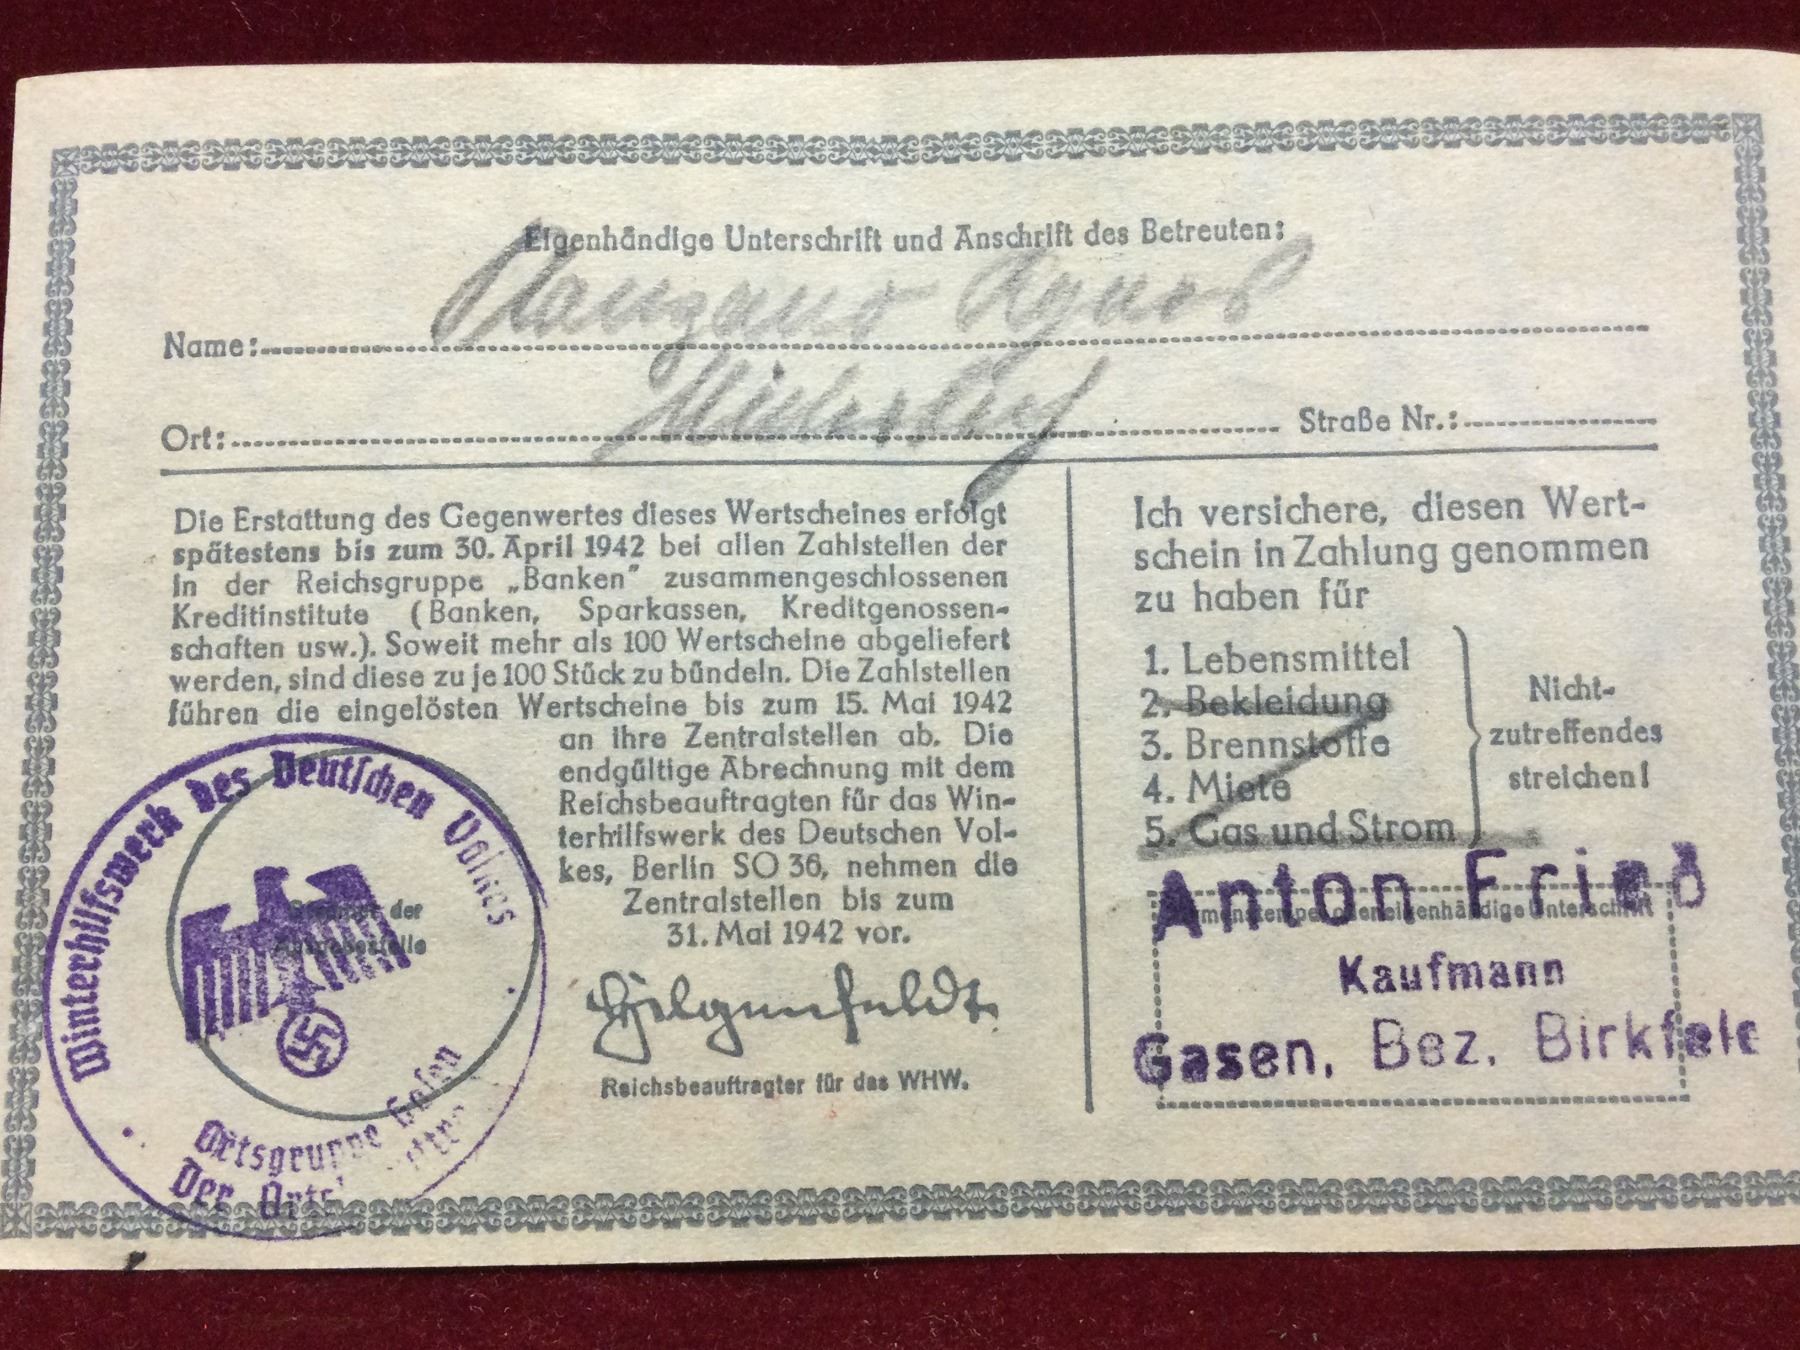 Eigenhändige Unterschrift und Anschrift des Betreuten:
Name: Agnes
Ort: Straße Nr.:
Die Erstattung des Gegenwertes dieses Wertscheines erfolgt
spätestens bis zum 30. April 1942 bei allen Zahlstellen der
in der Reichsgruppe „Banken” zusammengeschlossenen
Kreditinstitute (Banken, Sparkassen, Kreditgenossen-
schaften usw.). Soweit mehr als 100 Wertscheine abgeliefert
werden, sind diese zu je 100 Stück zu bündeln. Die Zahlstellen
führen die eingelösten Wertscheine bis zum 15. Mai 1942
an ihre Zentralstellen ab. Die
endgültige Abrechnung mit dem
Reichsbeauftragten für das Win-
terhilfswerk des Deutschen Vol-
kes, Berlin SO 36, nehmen die
Zentralstellen bis zum
31. Mai 1942 vor.
Hilgenfeldt
Reichsbeauftragter für das WHW.
Winterhilfswerk des Deutschen Volkes
der
Ausgabestelle
Ortsgruppe Gasen
Der
Ich versichere, diesen Wert-
schein in Zahlung genommen
zu haben für
1. Lebensmittel
2. Bekleidung
3. Brennstoffe
4. Miete
5. Gas und Strom
Nicht-
zutreffendes
streichen!
Anton Fried
eigenhändige Unterschrift
Kaufmann
Gasen, Bez. Birkfeld